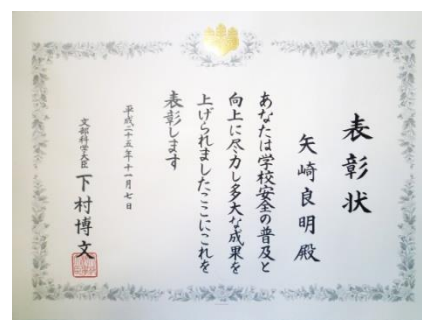 表彰状
矢崎良明殿
あなたは学校安全の普及と
向上に尽力し多大な成果を
上げられましたここにこれを
表彰します
平成二十五年十一月七日
文部科学大臣 下村博文